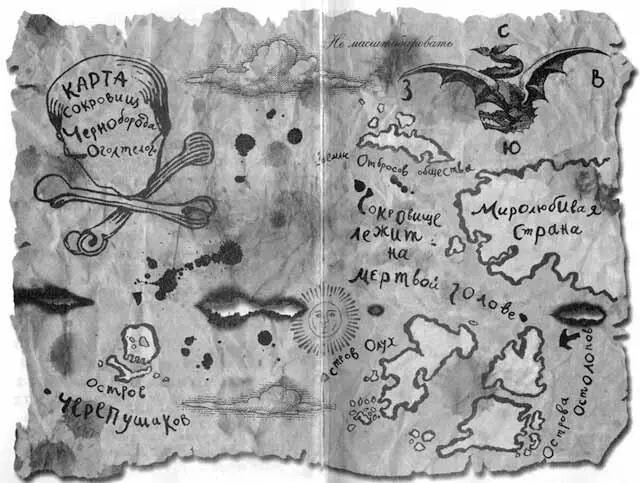 КАРТА
СОКРОВИЩ
ЧЕРНОБОРОДА
ОГОЛТЕЛОГО
Не масштабировать
С
З
В
Ю
Земли Отбросов общества
Сокровище
лежит
на
мертвой голове
Миролюбивая
Страна
Остров Олух
Острова Остолопов
ОСТРОВ
ЧЕРЕПУШАКОВ